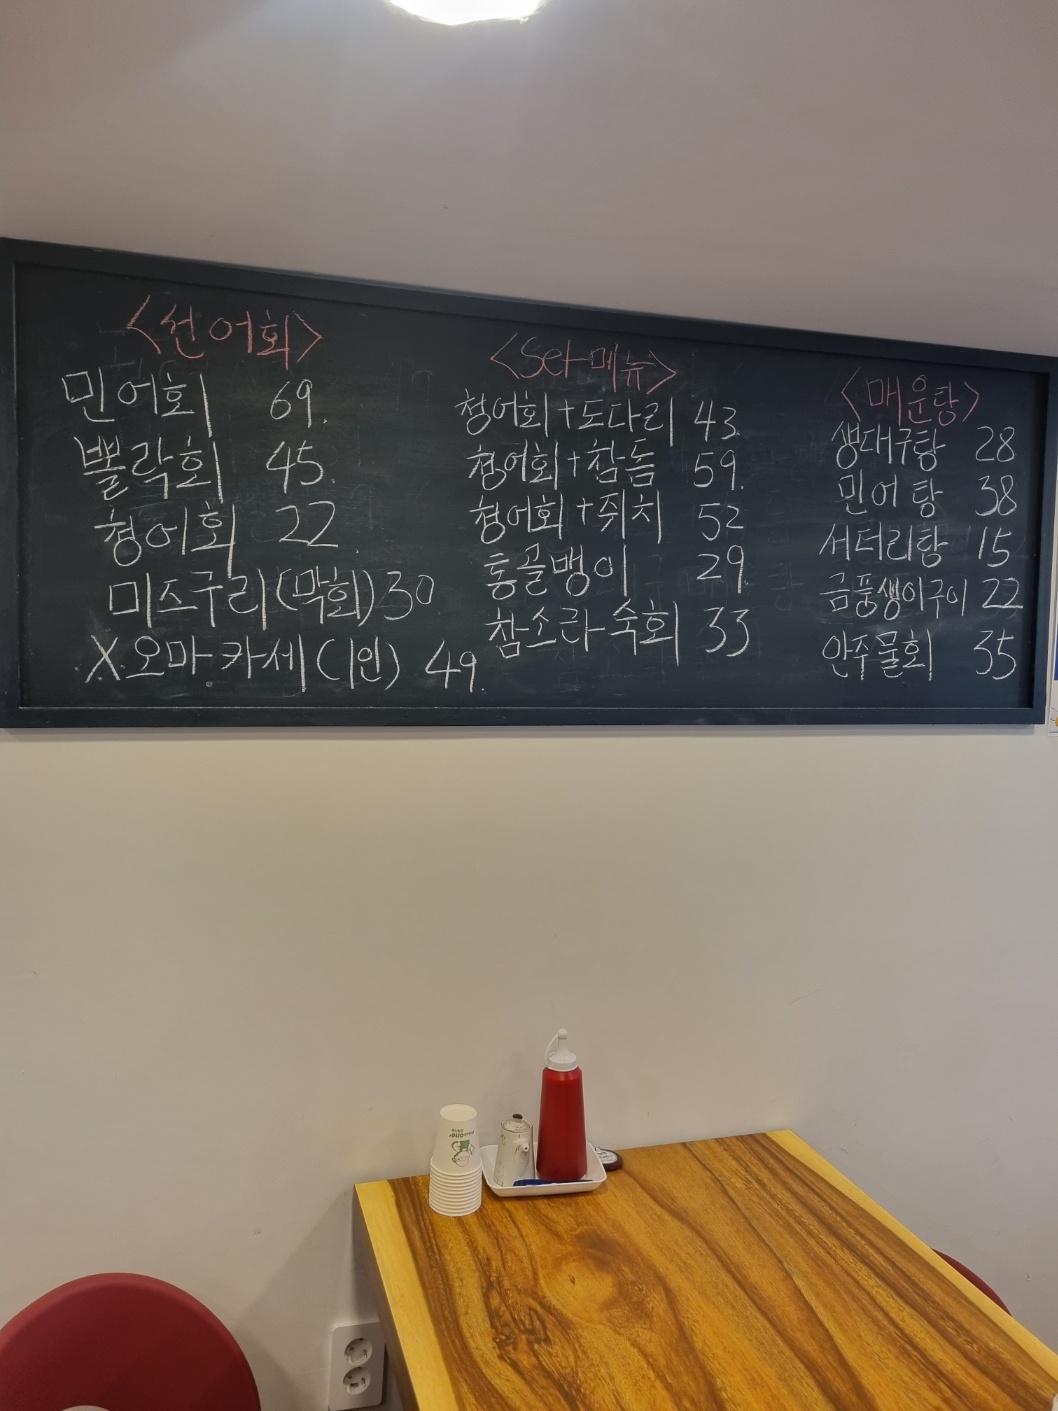 <선어회>
민어회 69.
뽈락회 45.
청어회 22.
미즈구리(막회) 30
X.오마카세(1인) 49.
<Set 메뉴>
청어회+도다리 43.
청어회+참돔 59.
청어회+쥐치 52
통골뱅이 29.
참소라숙회 33
<매운탕>
생대구탕 28
민어탕 38
서더리탕 15
금풍생이구이 22
안주물회 35